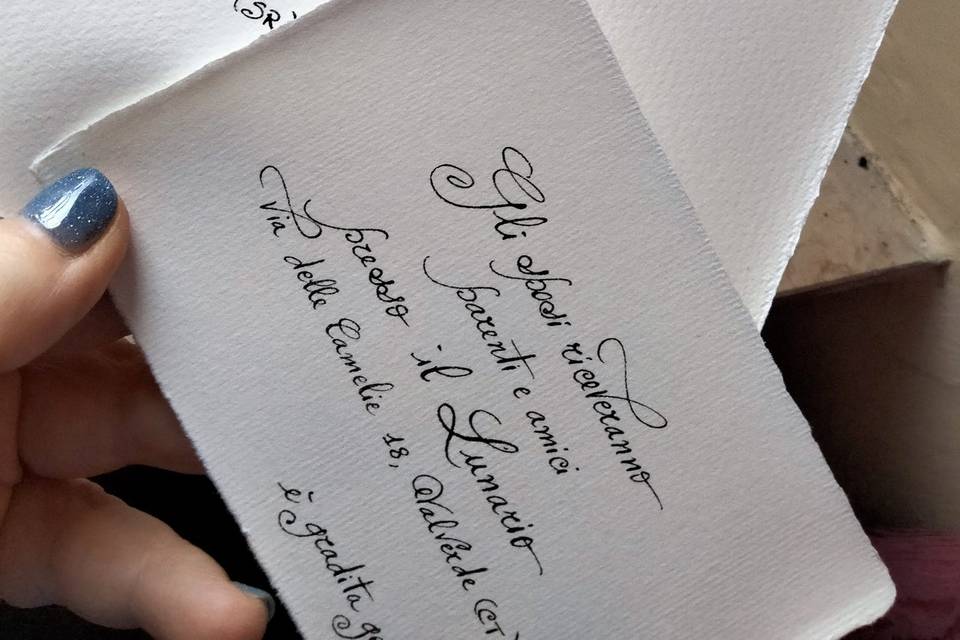 (SR)
Gli sposi riceveranno
parenti e amici
presso il Lunario
Via delle Camelie 18, Valverde (CT)
è gradita